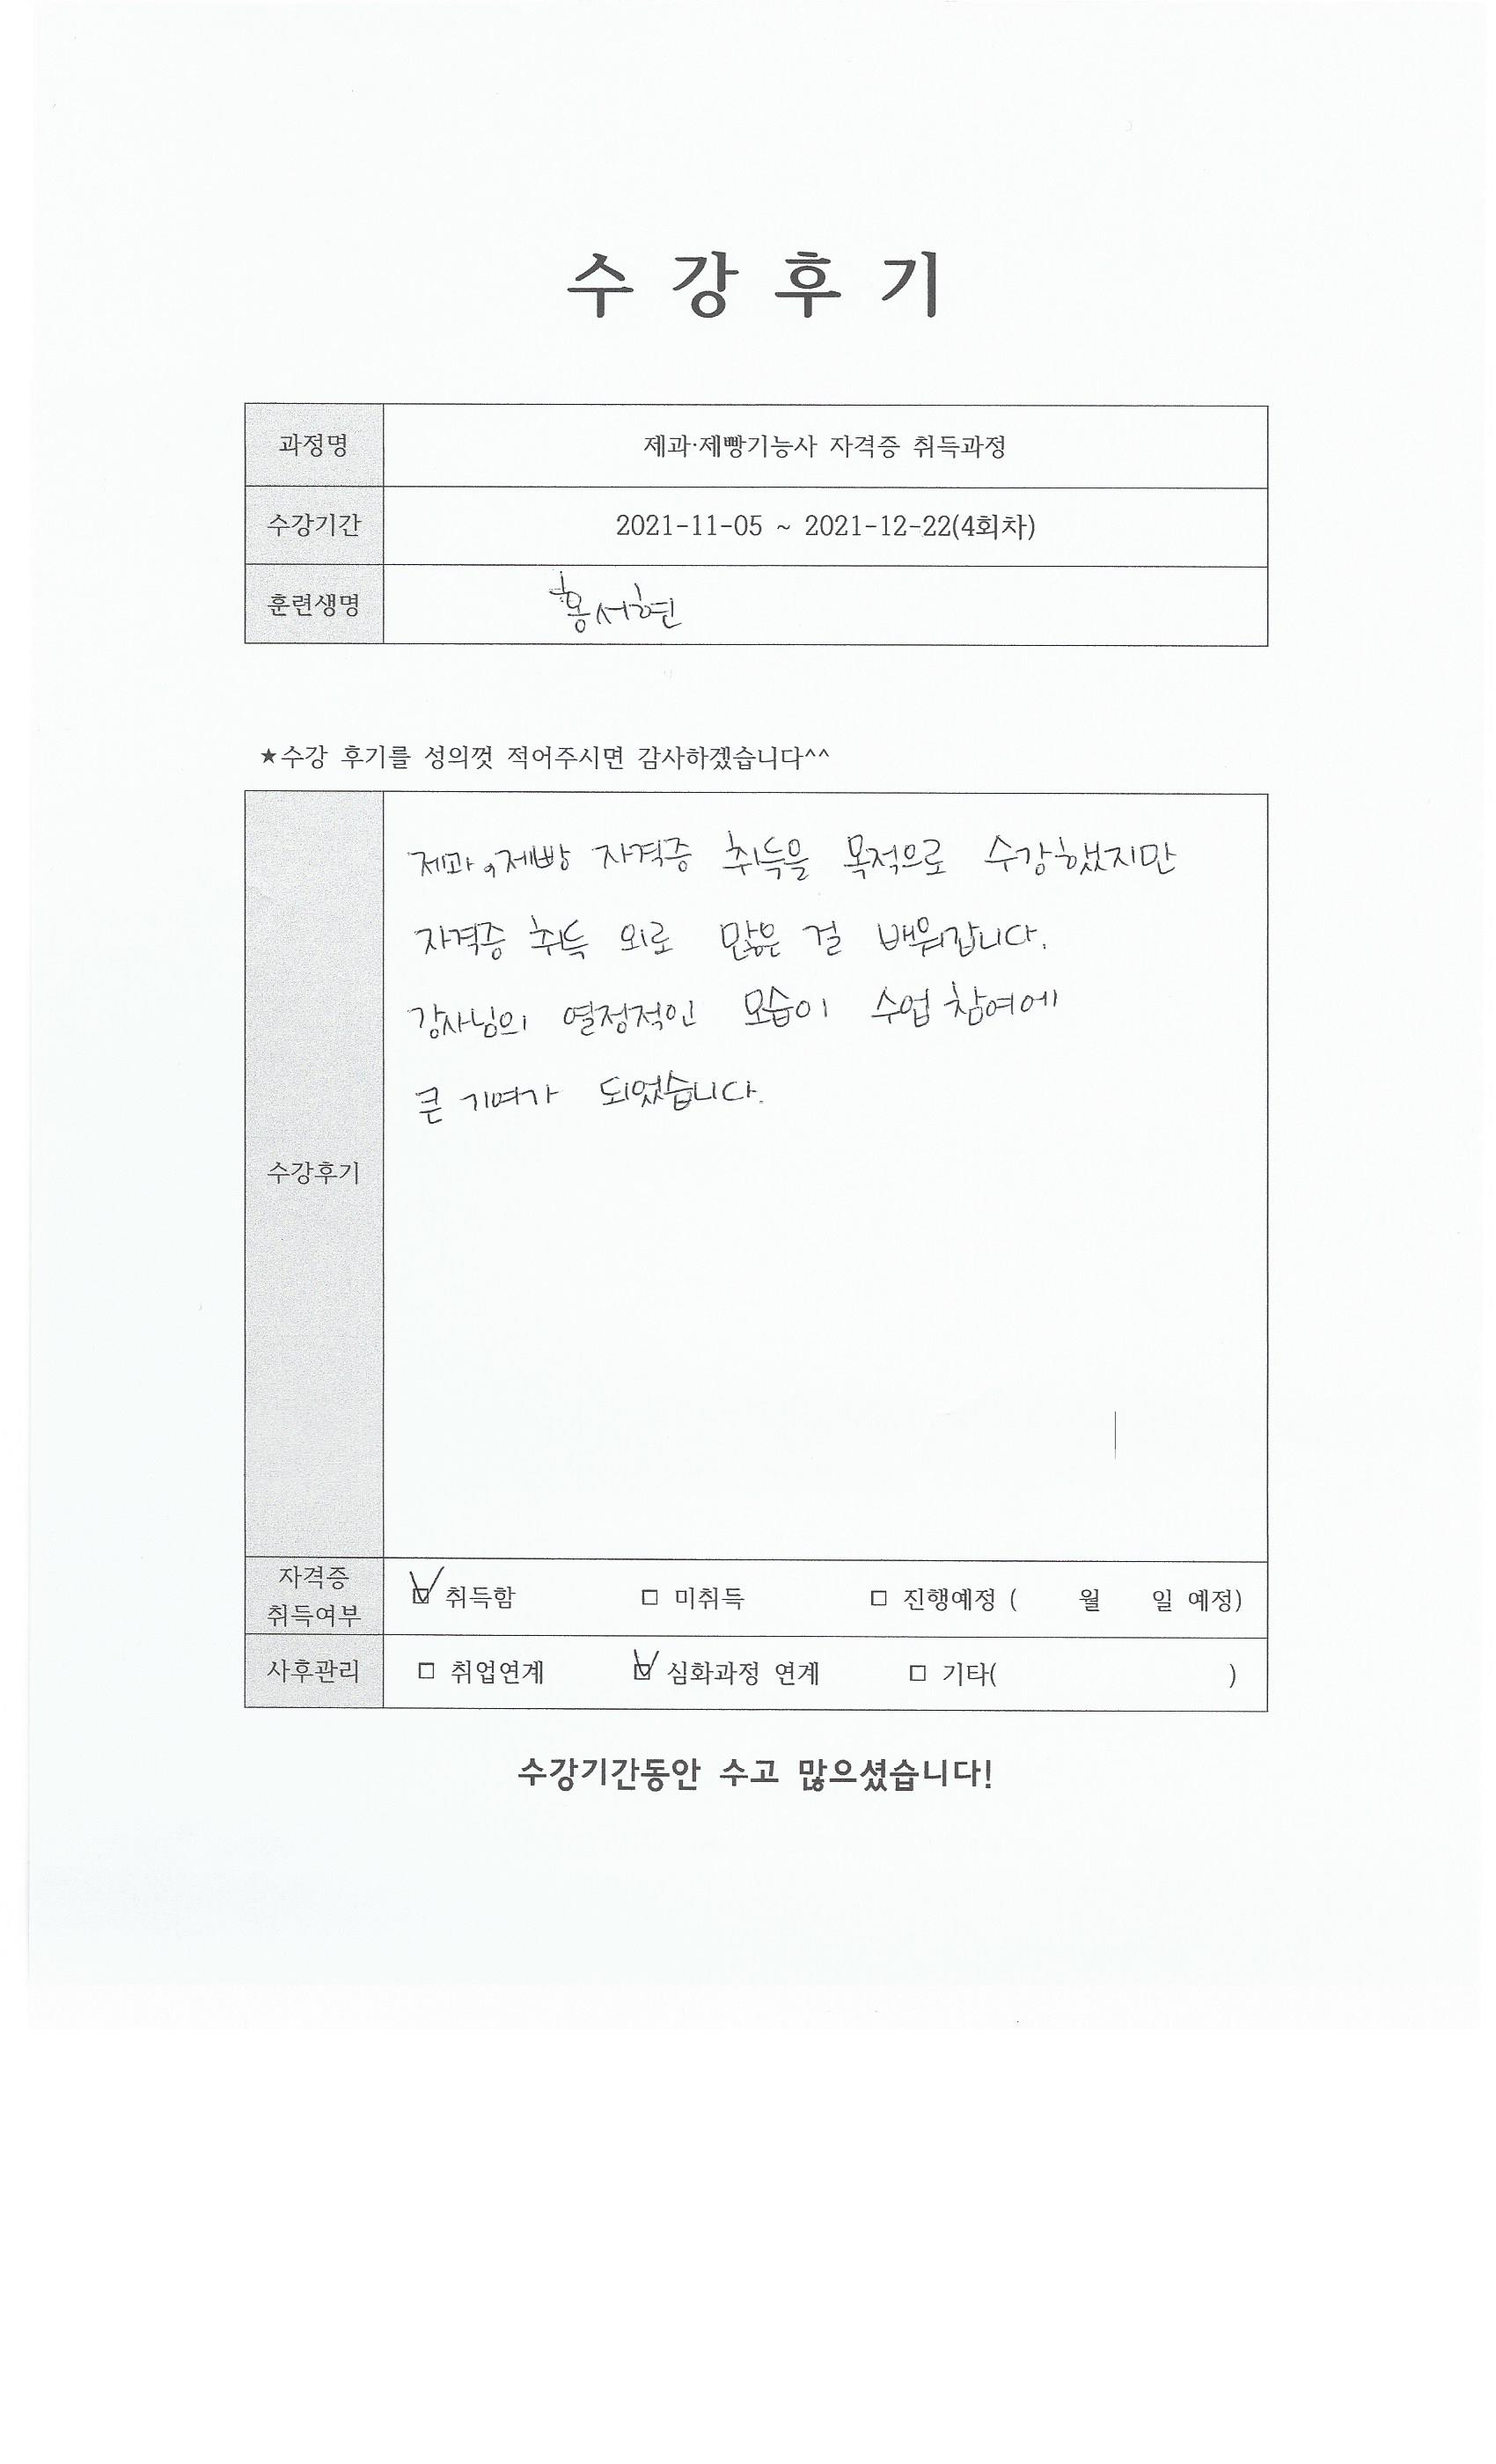 수 강 후 기
과정명 제과·제빵기능사 자격증 취득과정
수강기간 2021-11-05 ~ 2021-12-22(4회차)
훈련생명 홍서현
★수강 후기를 성의껏 적어주시면 감사하겠습니다^^
제과,제빵 자격증 취득을 목적으로 수강했지만
자격증 취득 외로 많은 걸 배워갑니다.
강사님의 열정적인 모습이 수업 참여에
큰 기여가 되었습니다.
수강후기
자격증
취득여부
☑ 취득함 □ 미취득 □ 진행예정 ( 월 일 예정)
사후관리 □ 취업연계 ☑ 심화과정 연계 □ 기타( )
수강기간동안 수고 많으셨습니다!